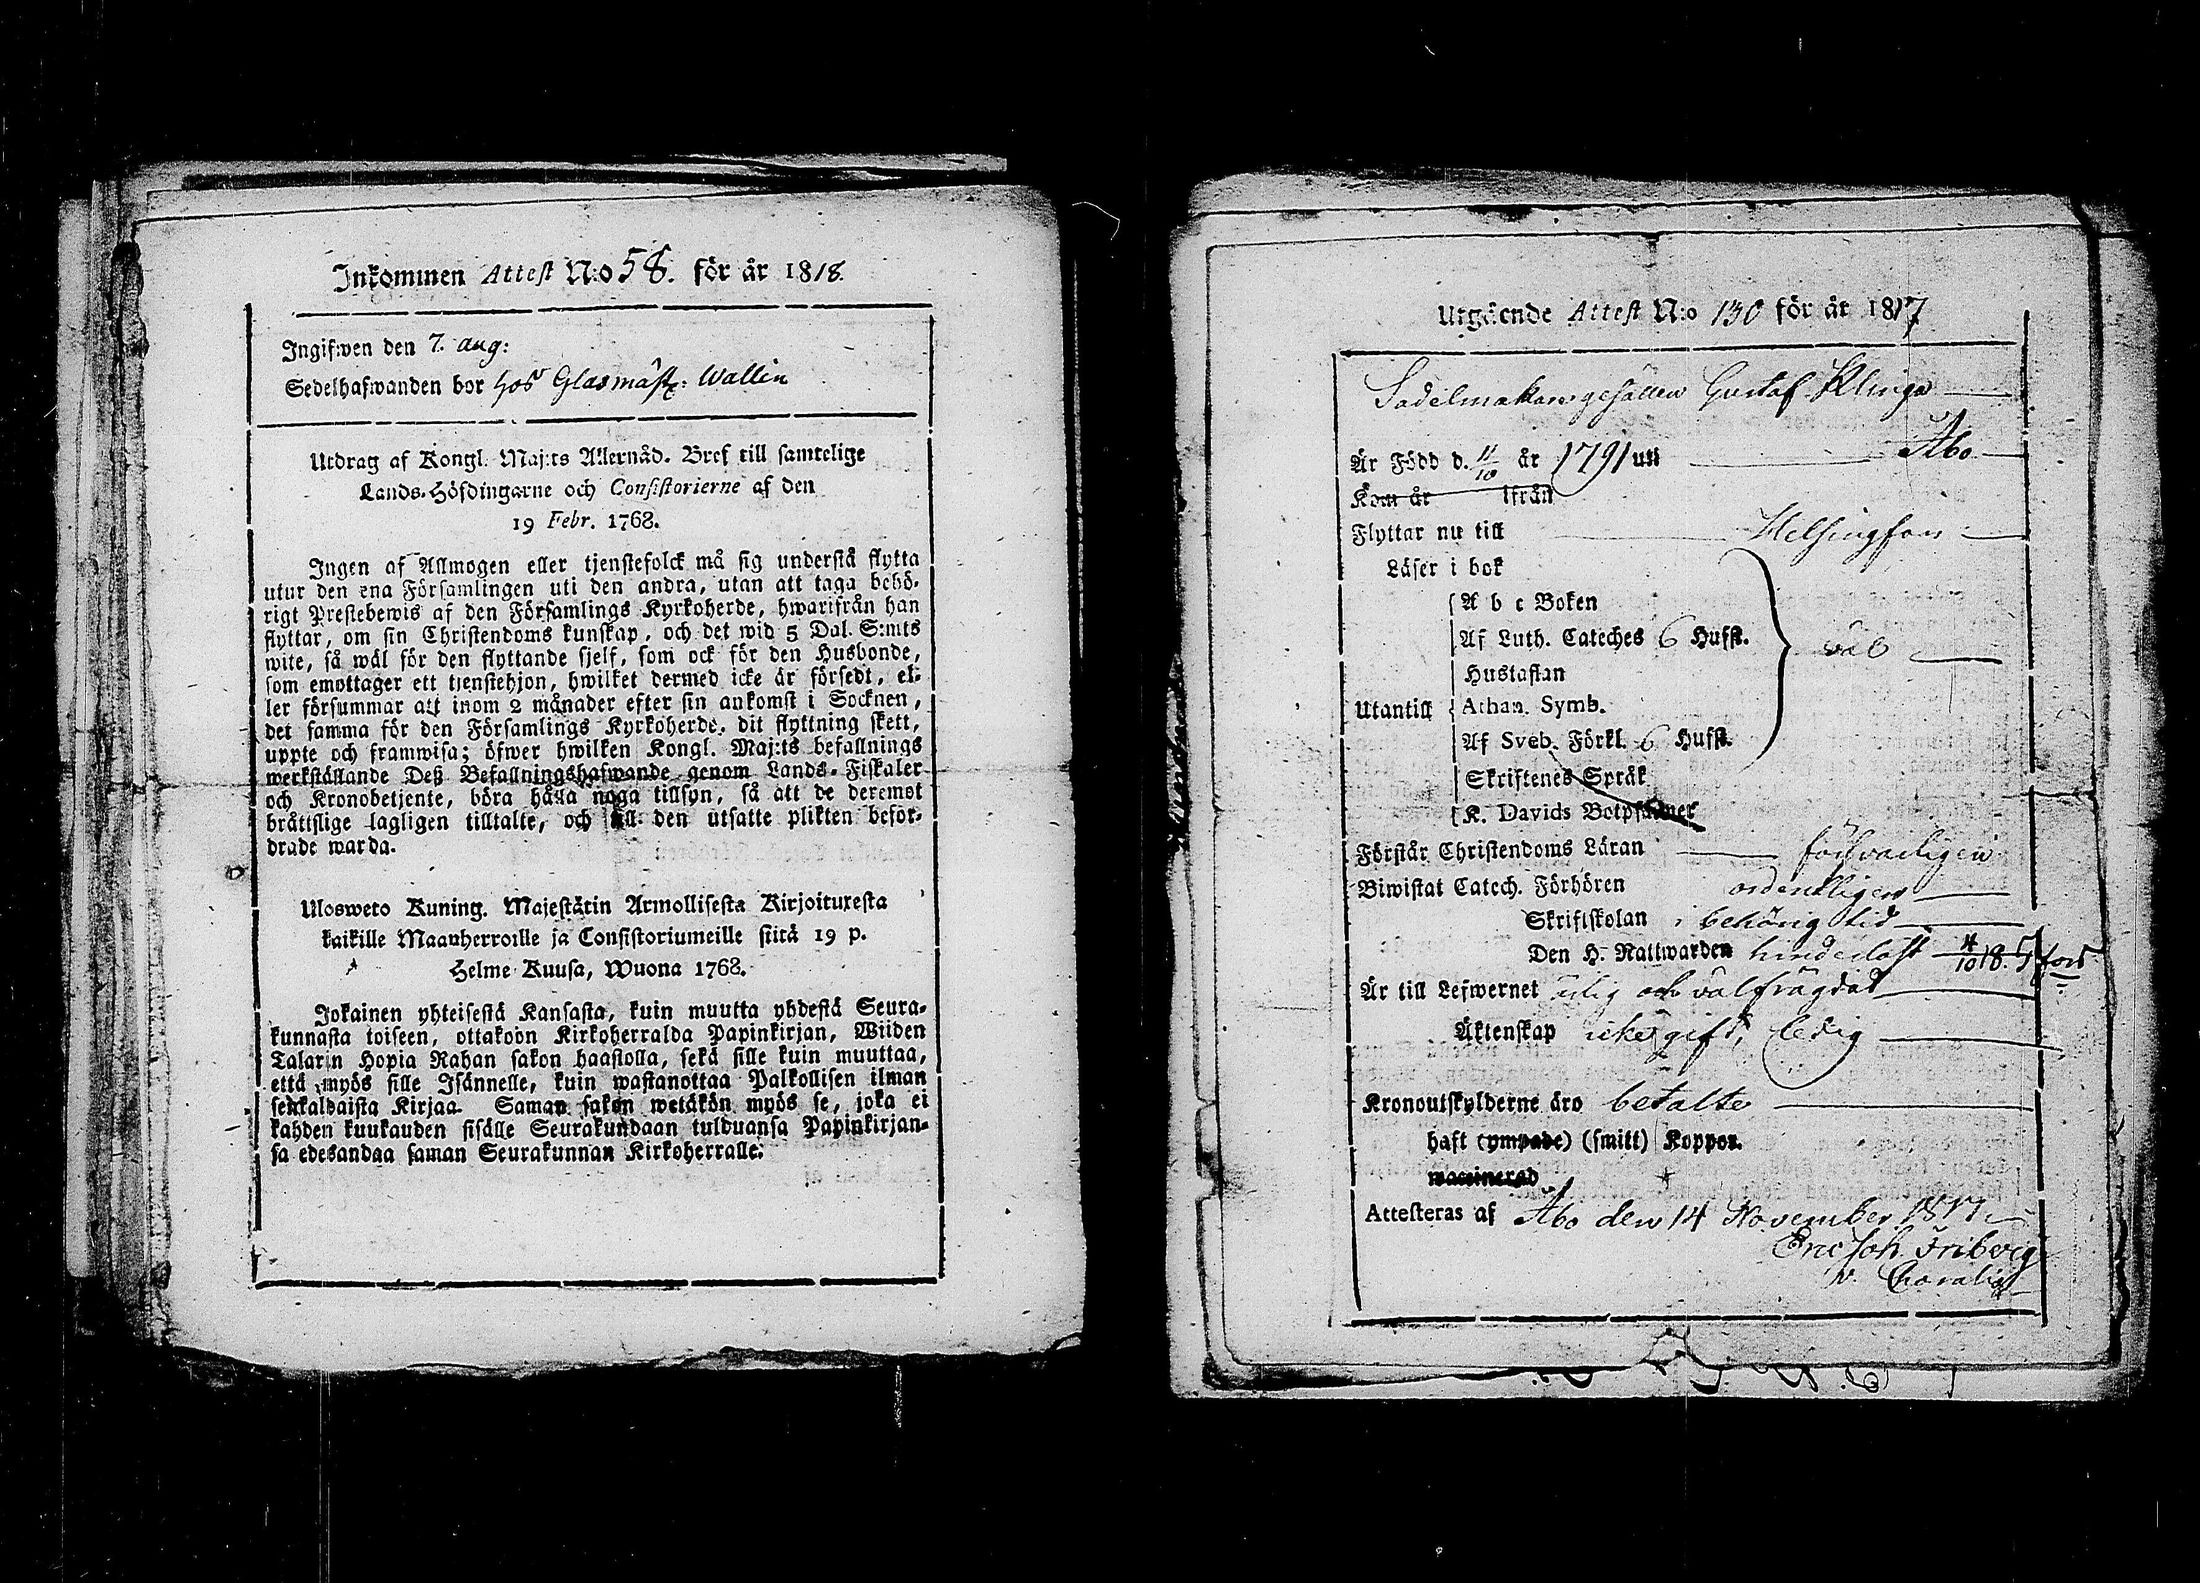 Inkommen Attest N:o 58. för år 1818.
Ingifwen den 7. aug:
Sedelhafwanden bor hos Glasmäst: Wallin
Utdrag af Kongl. Maj:ts Allernåd. Bref till samtelige
Lands-Höfdingarne och Consistorierne af den
19 Febr. 1768.
Ingen af Allmogen eller tjenstefolck må sig understå flytta
utur den ena Församlingen uti den andra, utan att taga behö-
rigt Prestebewis af den Församlings Kyrkoherde, hwarifrån han
flyttar, om sin Christendoms kunskap, och det wid 5 Dal. S:mts
wite, så wäl för den flyttande sjelf, som ock för den Husbonde,
som emottager ett tjenstehjon, hwilket dermed icke är försedt, el-
ler försummar att inom 2 månader efter sin ankomst i Socknen,
det samma för den Församlings Kyrkoherde, dit flyttning skett,
uppte och framwisa; öfwer hwilken Kongl. Maj:ts befallnings
werkställande Deß Befallningshafwande genom Lands-Fiskaler
och Kronobetjente, böra hålla noga tillsyn, så att de deremot
bråttslige lagligen tilltalte, och till den utsatte plikten befor-
drade warda.
Ulosweto Kuning. Majestätin Armollisesta Kirjoituxesta
kaikille Maanherroille ja Consistoriumeille siitä 19 p.
Helme-Kuusa, Wuona 1768.
Jokainen yhteisestä Kansasta, kuin muutta yhdestä Seura-
kunnasta toiseen, ottakoon Kirkoherralda Papinkirjan, Wiiden
Talarin Hopia Rahan sakon haastolla, sekä sille kuin muuttaa,
että myös sille Isännelle, kuin wastanottaa Palkollisen ilman
senkaldaista Kirjaa. Saman sakon wetäkön myös se, joka ei
kahden kuukauden sisälle Seurakundaan tulduansa Papinkirjan-
sa edesandaa saman Seurakunnan Kirkoherralle.
Utgående Attest N:o 130 för år 1817
Sadelmakaregesällen Gustaf Klinga
Är Född d. 11/10 år 1791 uti Åbo
Kom år ifrån
Flyttar nu till Helsingfors
Läser i bok
A b c Boken
Af Luth. Cateches 6 Hufst. väl
Hustaflan
Utantill Athan. Symb.
Af Sveb. Förkl. 6 Hufst.
Skriftenes Språk
K. Davids Botpsalmer
Förstår Christendoms Läran försvarligen
Biwistat Catech. Förhören ordentligen
Skriftskolan i behörig tid
Den H. Nattwarden hinderlöst
Är till Lefwernet ärlig och välfrägdad
Äktenskap icke gift, ledig
Kronoutskylderne äro betalte
haft (ympade) (smitt) Koppor.
waccinerad
Attesteras af Åbo den 14 November 1817
Eric Joh. Friberg